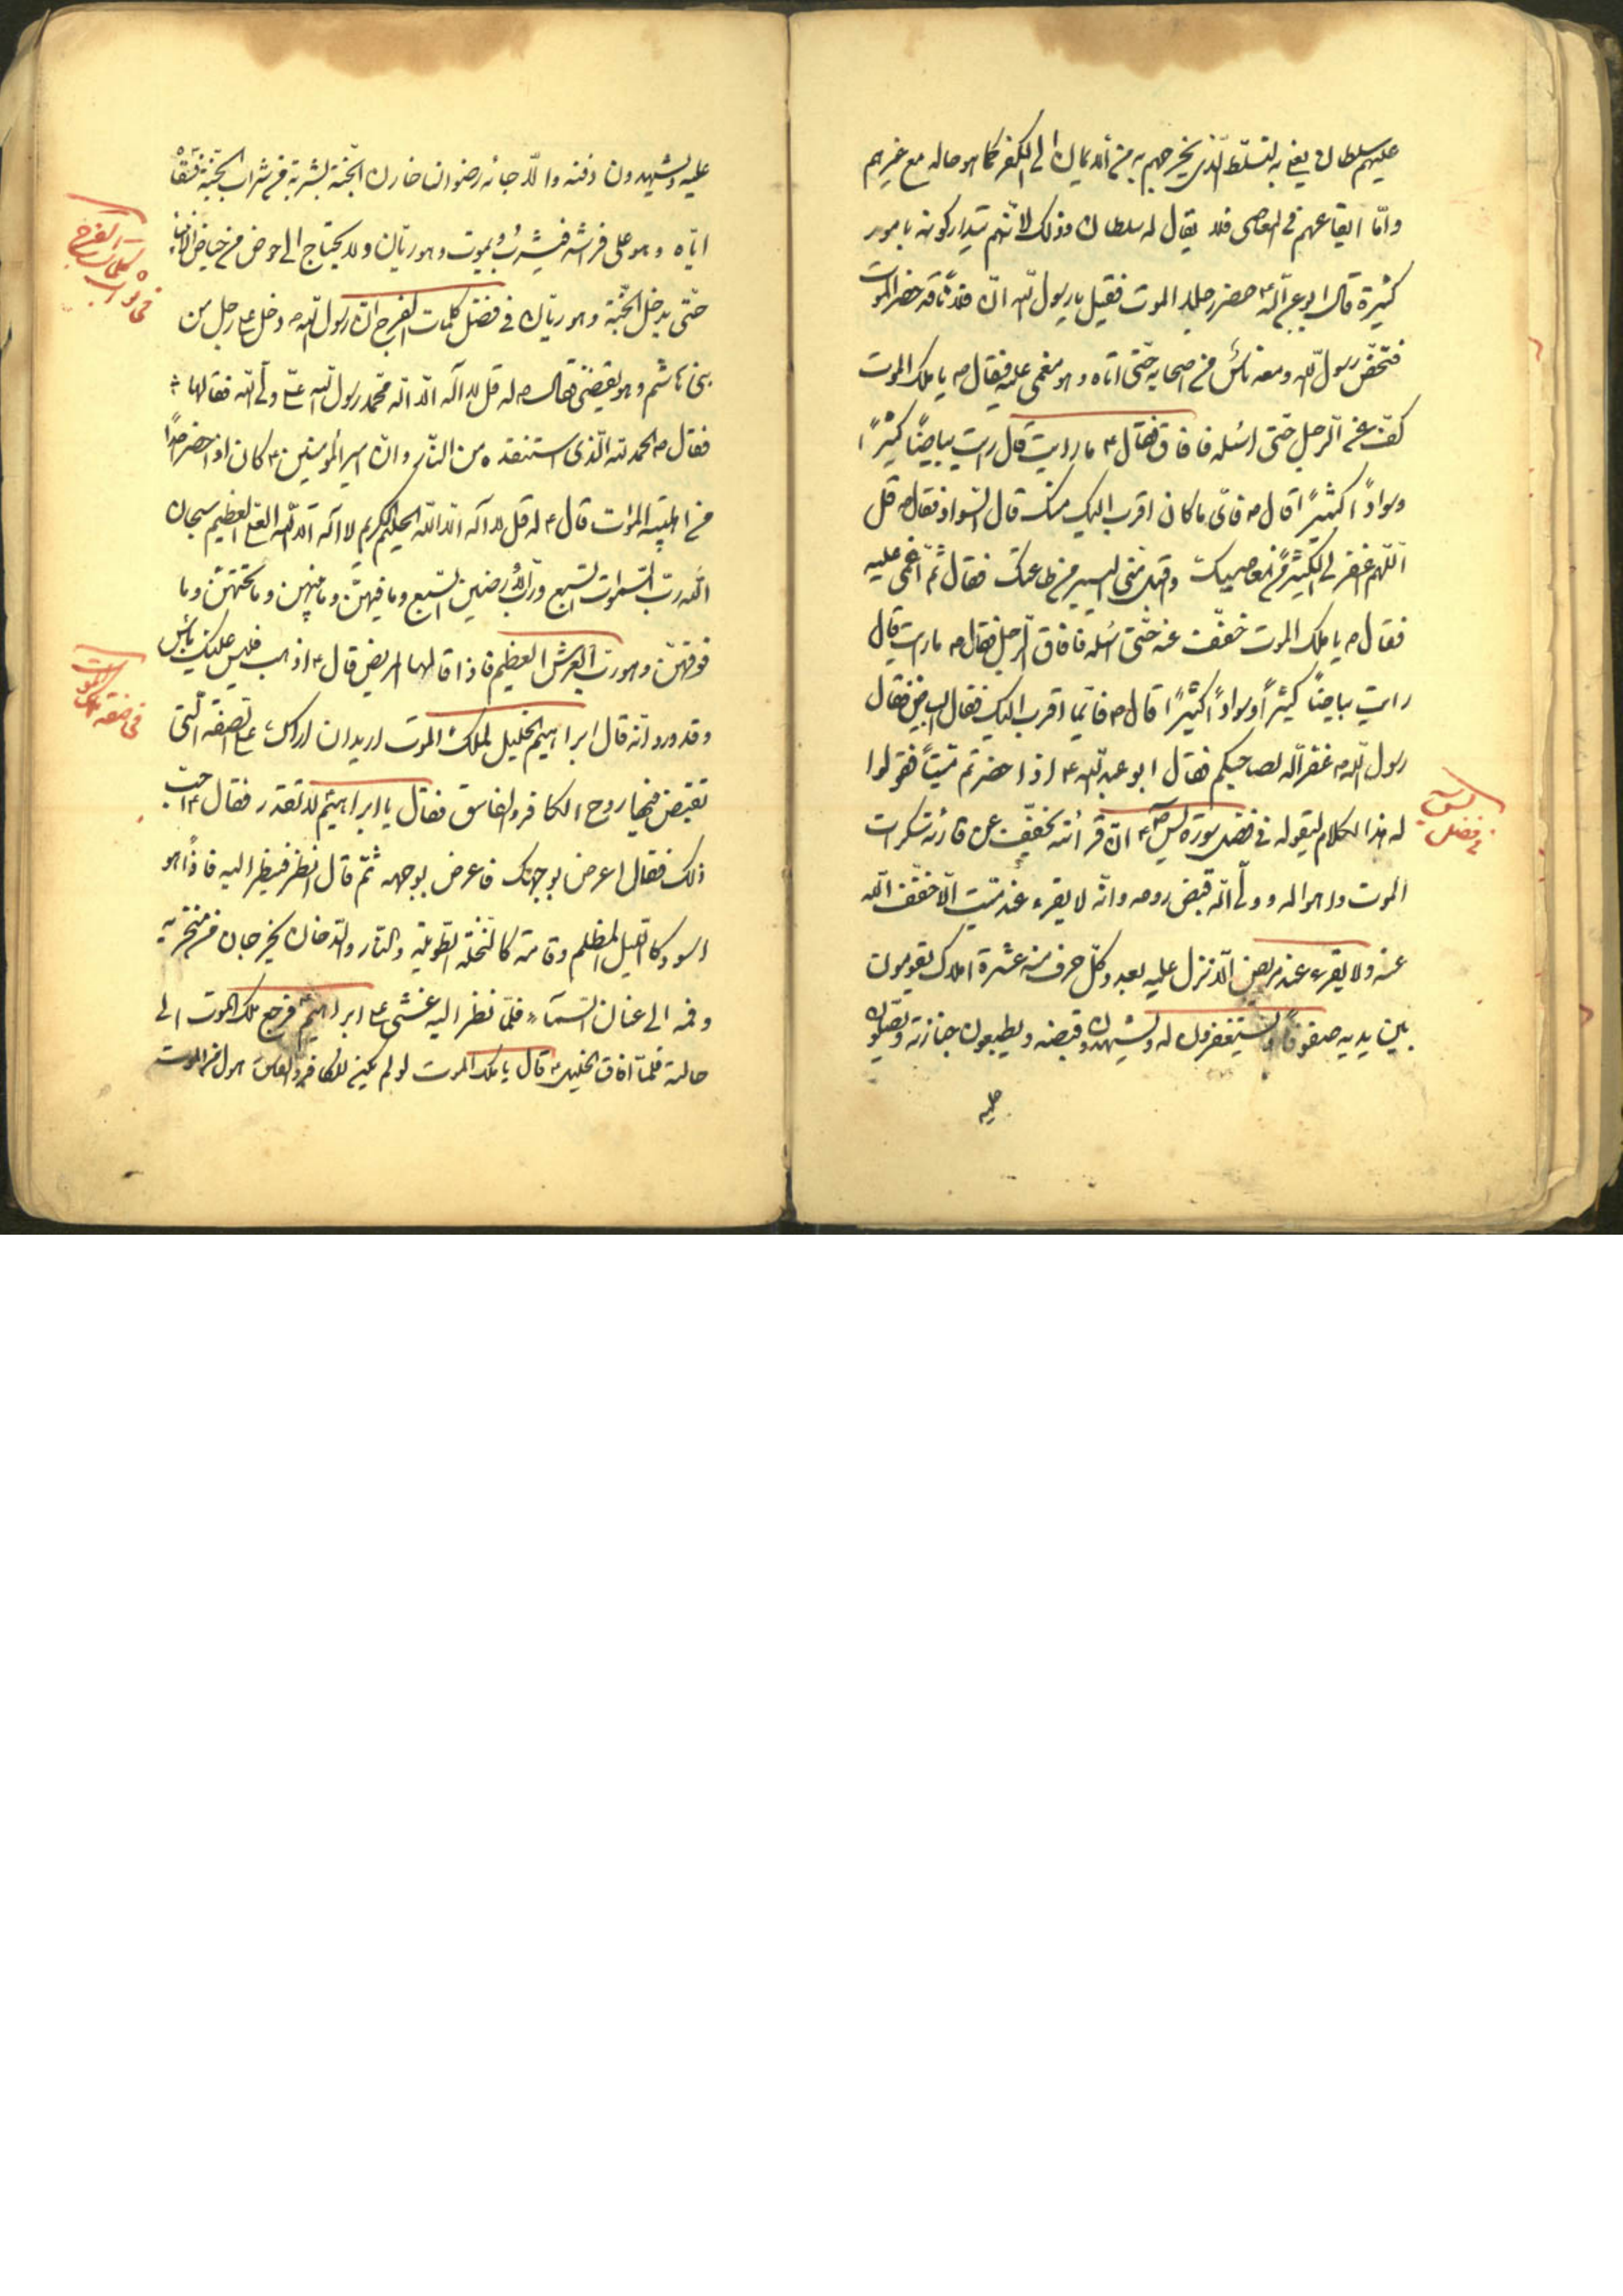 عليهم سلطان يعني به التسلّط الّذي يخرجهم به من الايمان الى الكفر كما هو حاله مع غيرهم
وامّا ايقاعهم في المعاصي فلا يقال له سلطان وذلك لانّهم يتداركونه بامور
كثيرة قال ابو عبد الله ع حضر رجلا الموت فقيل يا رسول الله انّ فلانا قد حضره الموت
فنهض رسول الله ومعه ناس من اصحابه حتّى اتاه وهو مغمى عليه فقال ص يا ملك الموت
كفّ عن الرجل حتى اسئله فافاق فقال ع ما رايت قال رايت بياضًا كثيرًا
وسوادًا كثيرًا قال ص فايّ ما كان اقرب اليك منك قال السّواد فقال ص قل
اللّهم اغفر لي الكثير من معاصيك واقبل منّي اليسير من طاعتك فقال ثمّ اغمي عليه
فقال ص يا ملك الموت خفّف عنه حتّى اسئله فافاق الرّجل فقال ص ما رايت قال
رايت بياضًا كثيرًا وسوادًا كثيرًا قال ص فايّما اقرب اليك فقال البياض فقال
رسول الله ص غفر الله لصاحبكم فقال ابو عبد الله ع اذا حضرتم ميّتًا فقولوا
له هذا الكلام ليقوله في فضل سورة يس ع انّ قرائته تخفّف عن قارئه سكرات
الموت واهواله وولّى الله قبض روحه وانّه لا يقرء عند ميّت الّا خفّف الله
عنه ولا يقرء عند مريض الّا نزل عليه بعدد كلّ حرف منه عشرة املاك يقومون
بين يديه صفوفًا ويستغفرون له ويشهدون قبضه ويتبعون جنازته ويصلّون
عليه
في فضل يس
عليه ويشهدون دفنه والّا جائه رضوان خازن الجنّة بشربة من شراب الجنّة فسقاه
ايّاه وهو على فراشه فيشرب ويموت وهو ريّان ولا يحتاج الى حوض من حياض الانبياء
حتّى يدخل الجنّة وهو ريّان في فضل كلمات الفرج انّ رسول الله ص دخل على رجل من
بني هاشم وهو يقضي فقال ص له قل لا اله الّا الله محمد رسول الله عليّ ولي الله فقالها
فقال ص الحمد لله الّذي استنقذه من النّار وانّ امير المؤمنين ع كان اذا حضر احدًا
من اهل بيته الموت قال ع له قل لا اله الّا الله الحليم الكريم لا اله الّا الله العليّ العظيم سبحان
الله ربّ السّموات السّبع وربّ الأرضين السّبع وما فيهنّ وما بينهن وما تحتهنّ وما
فوقهنّ وهو ربّ العرش العظيم فاذا قالها المريض قال ع اذهب فليس عليك باس
وقد ورد انّه قال ابراهيم الخليل لملك الموت اريد ان اراك على الصفة الّتي
تقبض فيها روح الكافر والفاسق فقال يا ابراهيم لا تقدر فقال ع احبّ
ذلك فقال اعرض بوجهك فاعرض بوجهه ثمّ قال انظر فنظر اليه فاذا هو
اسود كالليل المظلم وقامته كالنّخلة الطّويلة والنّار والدّخان يخرجان من منخريه
وفمه الى عنان السّماء فلمّا نظر اليه غشي على ابراهيم ع فرجع ملك الموت الى
حالته فلمّا افاق الخليل ع قال يا ملك الموت لو لم يكن للكافر والفاسق هول من الموت
في ثواب كلمات الفرج
في صفة ملك الموت